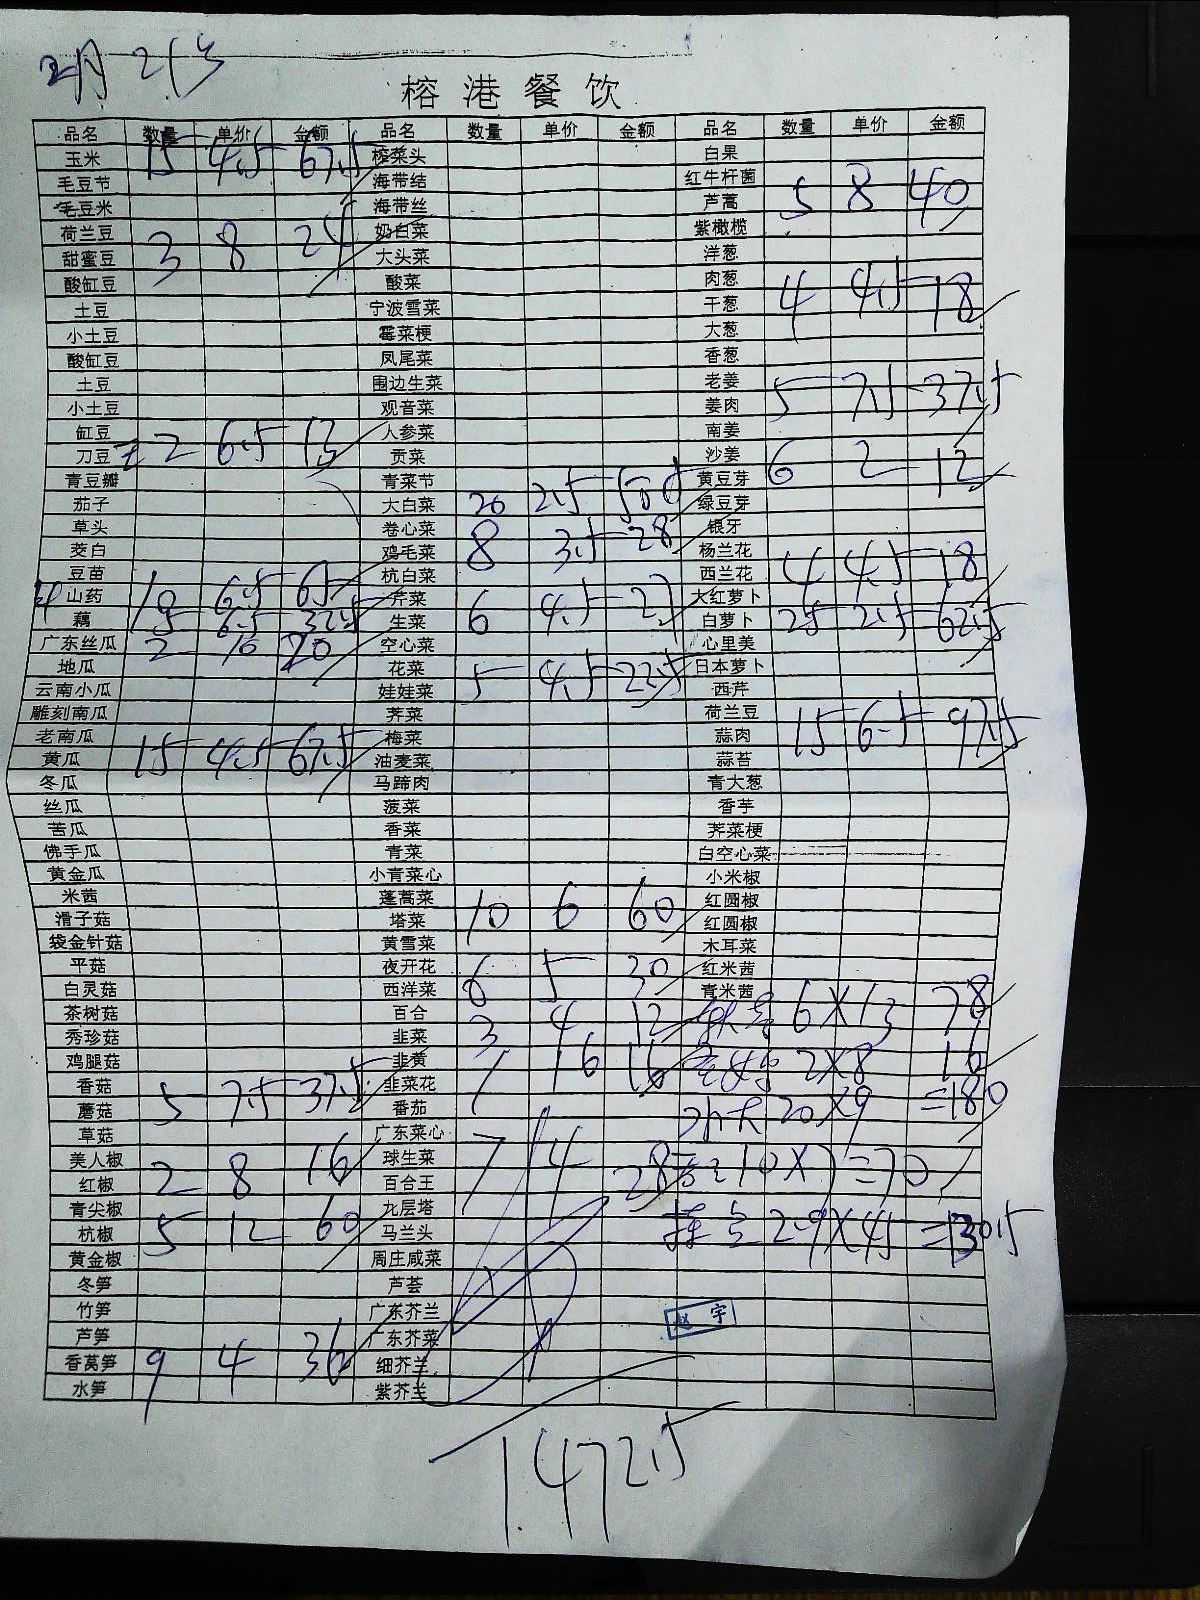 2月21号
榕港餐饮
品名 数量 单价 金额 品名 数量 单价 金额 品名 数量 单价 金额
玉米 15 4.5 67.5 榨菜头 白果
毛豆节 海带结 红牛杆菌
毛豆米 海带丝 芦蒿 5 8 40
荷兰豆 3 8 24 奶白菜 紫橄榄
甜蜜豆 大头菜 洋葱
酸缸豆 酸菜 肉葱
土豆 宁波雪菜 干葱 4 4.5 18
小土豆 霉菜梗 大葱
酸缸豆 凤尾菜 香葱
土豆 围边生菜 老姜 5 7.5 37.5
小土豆 观音菜 姜肉
缸豆 2 6.5 13 人参菜 南姜
刀豆 贡菜 沙姜
青豆瓣 青菜节 黄豆芽 6 2 12
茄子 大白菜 20 2.5 50 绿豆芽
草头 卷心菜 8 3.5 28 银牙
茭白 鸡毛菜 杨兰花
豆苗 杭白菜 西兰花 4 4.5 18
山药 10 6.5 65 芹菜 6 4.5 27 大红萝卜
藕 5 6.5 32.5 生菜 白萝卜 25 2.5 62.5
广东丝瓜 2 10 20 空心菜 心里美
地瓜 花菜 5 4.5 22.5 日本萝卜
云南小瓜 娃娃菜 西芹
雕刻南瓜 荠菜 荷兰豆
老南瓜 梅菜 蒜肉 15 6.5 97.5
黄瓜 15 4.5 67.5 油麦菜 蒜苔
冬瓜 马蹄肉 青大葱
丝瓜 菠菜 香芋
苦瓜 香菜 荠菜梗
佛手瓜 青菜 白空心菜
黄金瓜 小青菜心 小米椒
米茜 蓬蒿菜 10 6 60 红圆椒
滑子菇 塔菜 红圆椒
袋金针菇 黄雪菜 木耳菜
平菇 夜开花 6 5 30 红米茜
白灵菇 西洋菜 青米茜
茶树菇 百合 3 4 12 6X13 78
秀珍菇 韭菜
鸡腿菇 韭黄 1 16 16 2X8 16
香菇 5 7.5 37.5 韭菜花
蘑菇 番茄 20X9 =180
草菇 广东菜心
美人椒 2 8 16 球生菜 7 4 28 10X7=70
红椒 百合王
青尖椒 九层塔
杭椒 5 12 60 马兰头 2.9X45 =130.5
黄金椒 周庄咸菜
冬笋 芦荟
竹笋 广东芥兰 赵宇
芦笋 广东芥菜
香莴笋 9 4 36 细芥兰
水笋 紫芥兰
1472.5